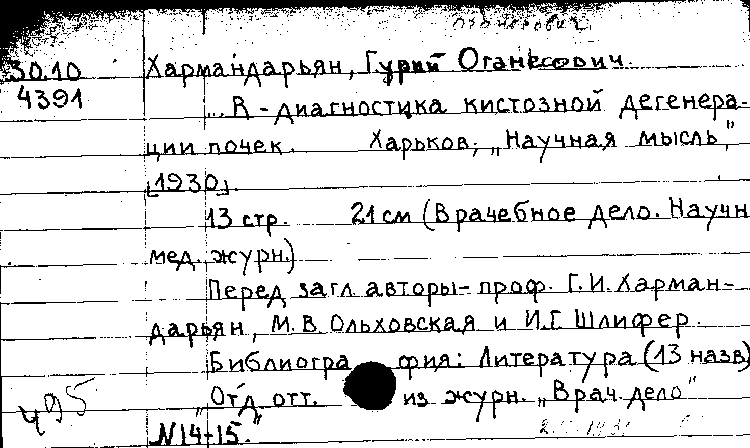 Оганесович.
30.10 Хармандарьян, Гурий Оганесович.
4391 ... R - диагностика кистозной дегенера-
ции почек. Харьков, „Научная мысль,"
[1930].
13 стр. 21 см (Врачебное дело. Научн
мед. журн.)
Перед загл. авторы - проф. Г.И. Харман-
дарьян, М.В. Ольховская и И.Г. Шлифер.
Библиогра фия: Литература (13 назв)
495 „Отд. отт. из журн. „Врач. дело"
N14-15."